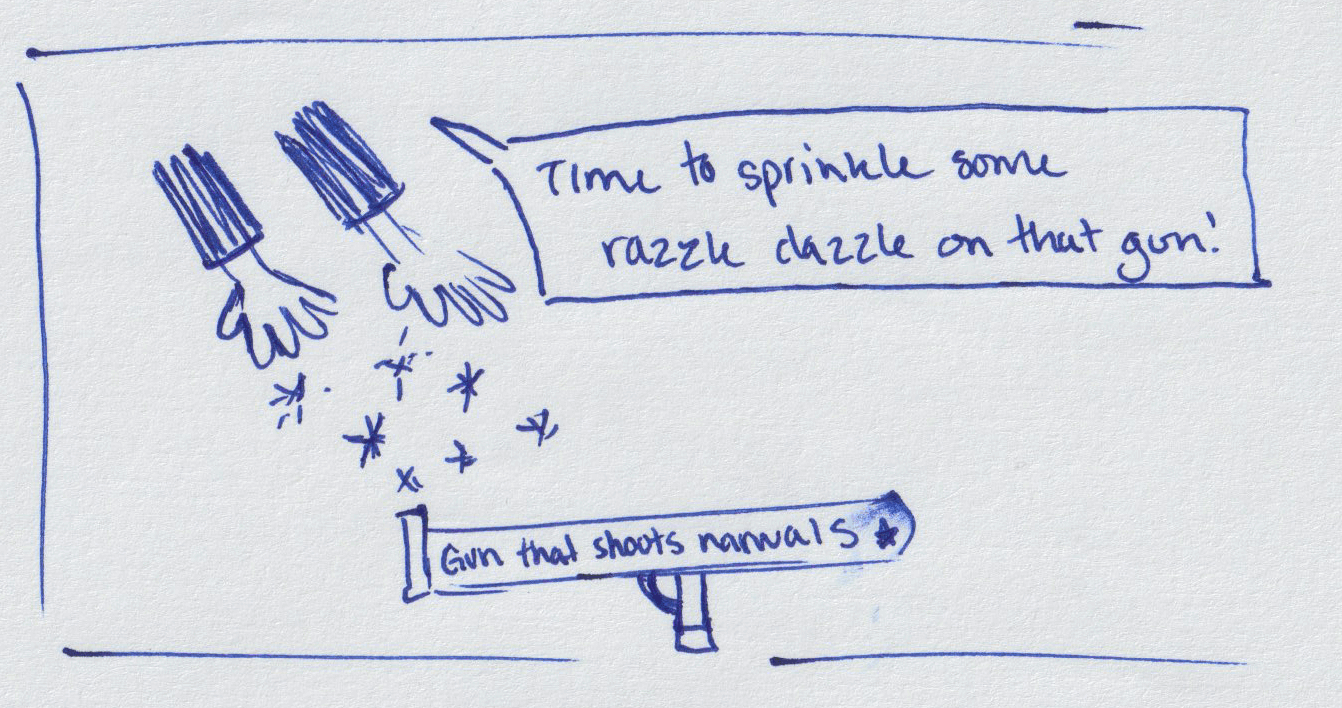 Time to sprinkle some
razzle dazzle on that gun!
Gun that shoots narwals